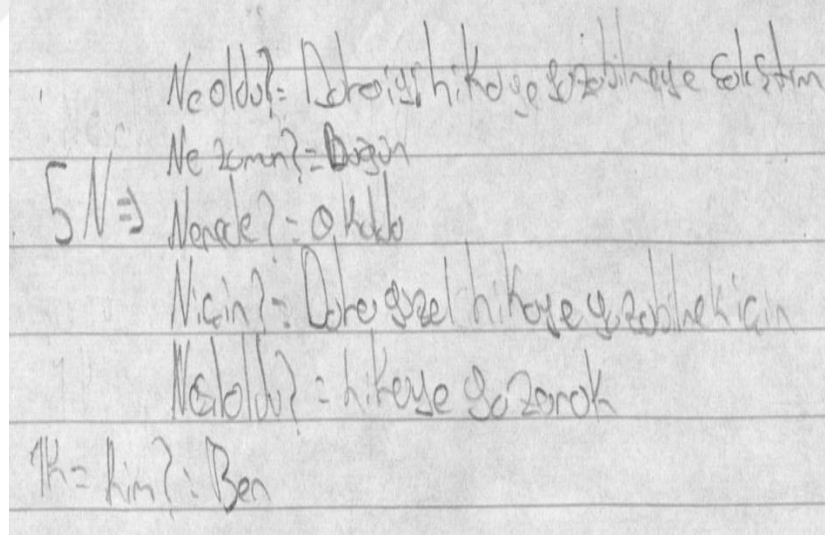 Ne oldu?= Daha iyi hikaye yazabilmeye çalıştım
Ne zaman?= Bugün
5N⇒ Nerede?= Okulda
Niçin?= Daha güzel hikaye yazabilmek için
Nasıl oldu?= hikaye yazarak
1K= kim?: Ben